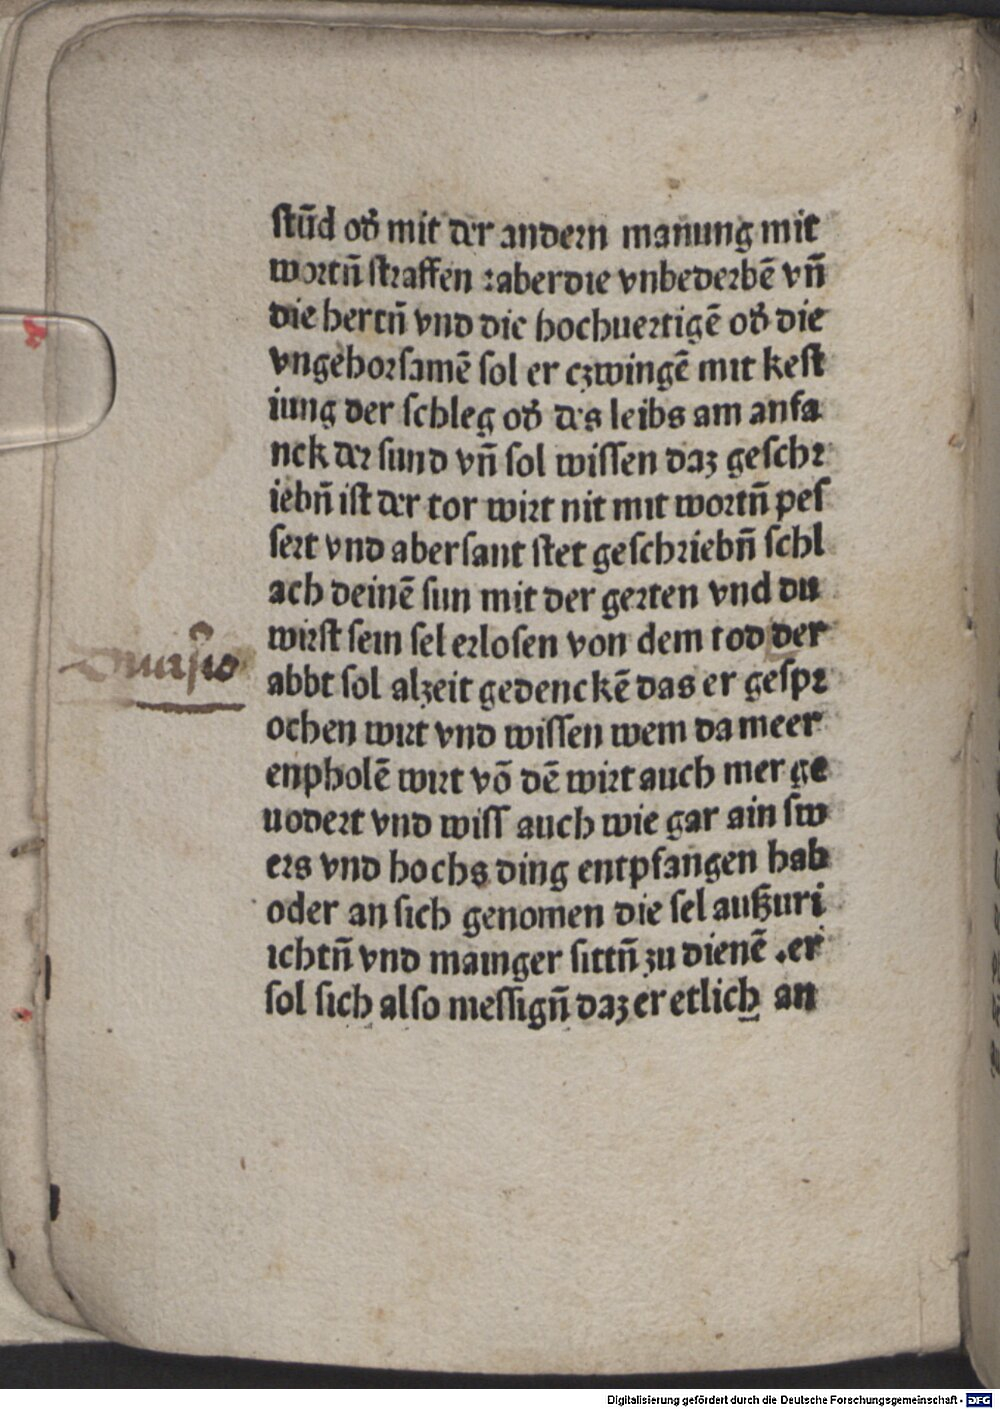 ſtūd od̕ mit der andern manung mit
wortn̄ ſtraffen ꝛaberdie vnbederbē vn̄
die hertn̄ vnd die hochuertigē od̕ die
vngehorſamē ſol er czwingē mit keſt
iung der ſchleg od̕ des leibs am anfa
nck der ſund vn̄ ſol wiſſen daz geſchr
iebn̄ iſt der tor wirt nit mit wortn̄ peſ
ſert vnd aberſant ſtet geſchriebn̄ ſchl
ach deinē ſun mit der gerten vnd du
wirſt ſein ſel erloſen von dem tod der
Diuiſio
abbt ſol alzeit gedenckē das er geſpr
ochen wirt vnd wiſſen wem da meer
enpholē wirt vō dē wirt auch mer ge
uodert vnd wiſſ auch wie gar ain ſw
ers vnd hochs ding entpfangen hab
oder an ſich genomen die ſel außzuri
ichtn̄ vnd mainger ſittn̄ zu dienē .er
ſol ſich alſo meſſign̄ daz er etlich an
Digitalisierung gefördert durch die Deutsche Forschungsgemeinschaft - DFG